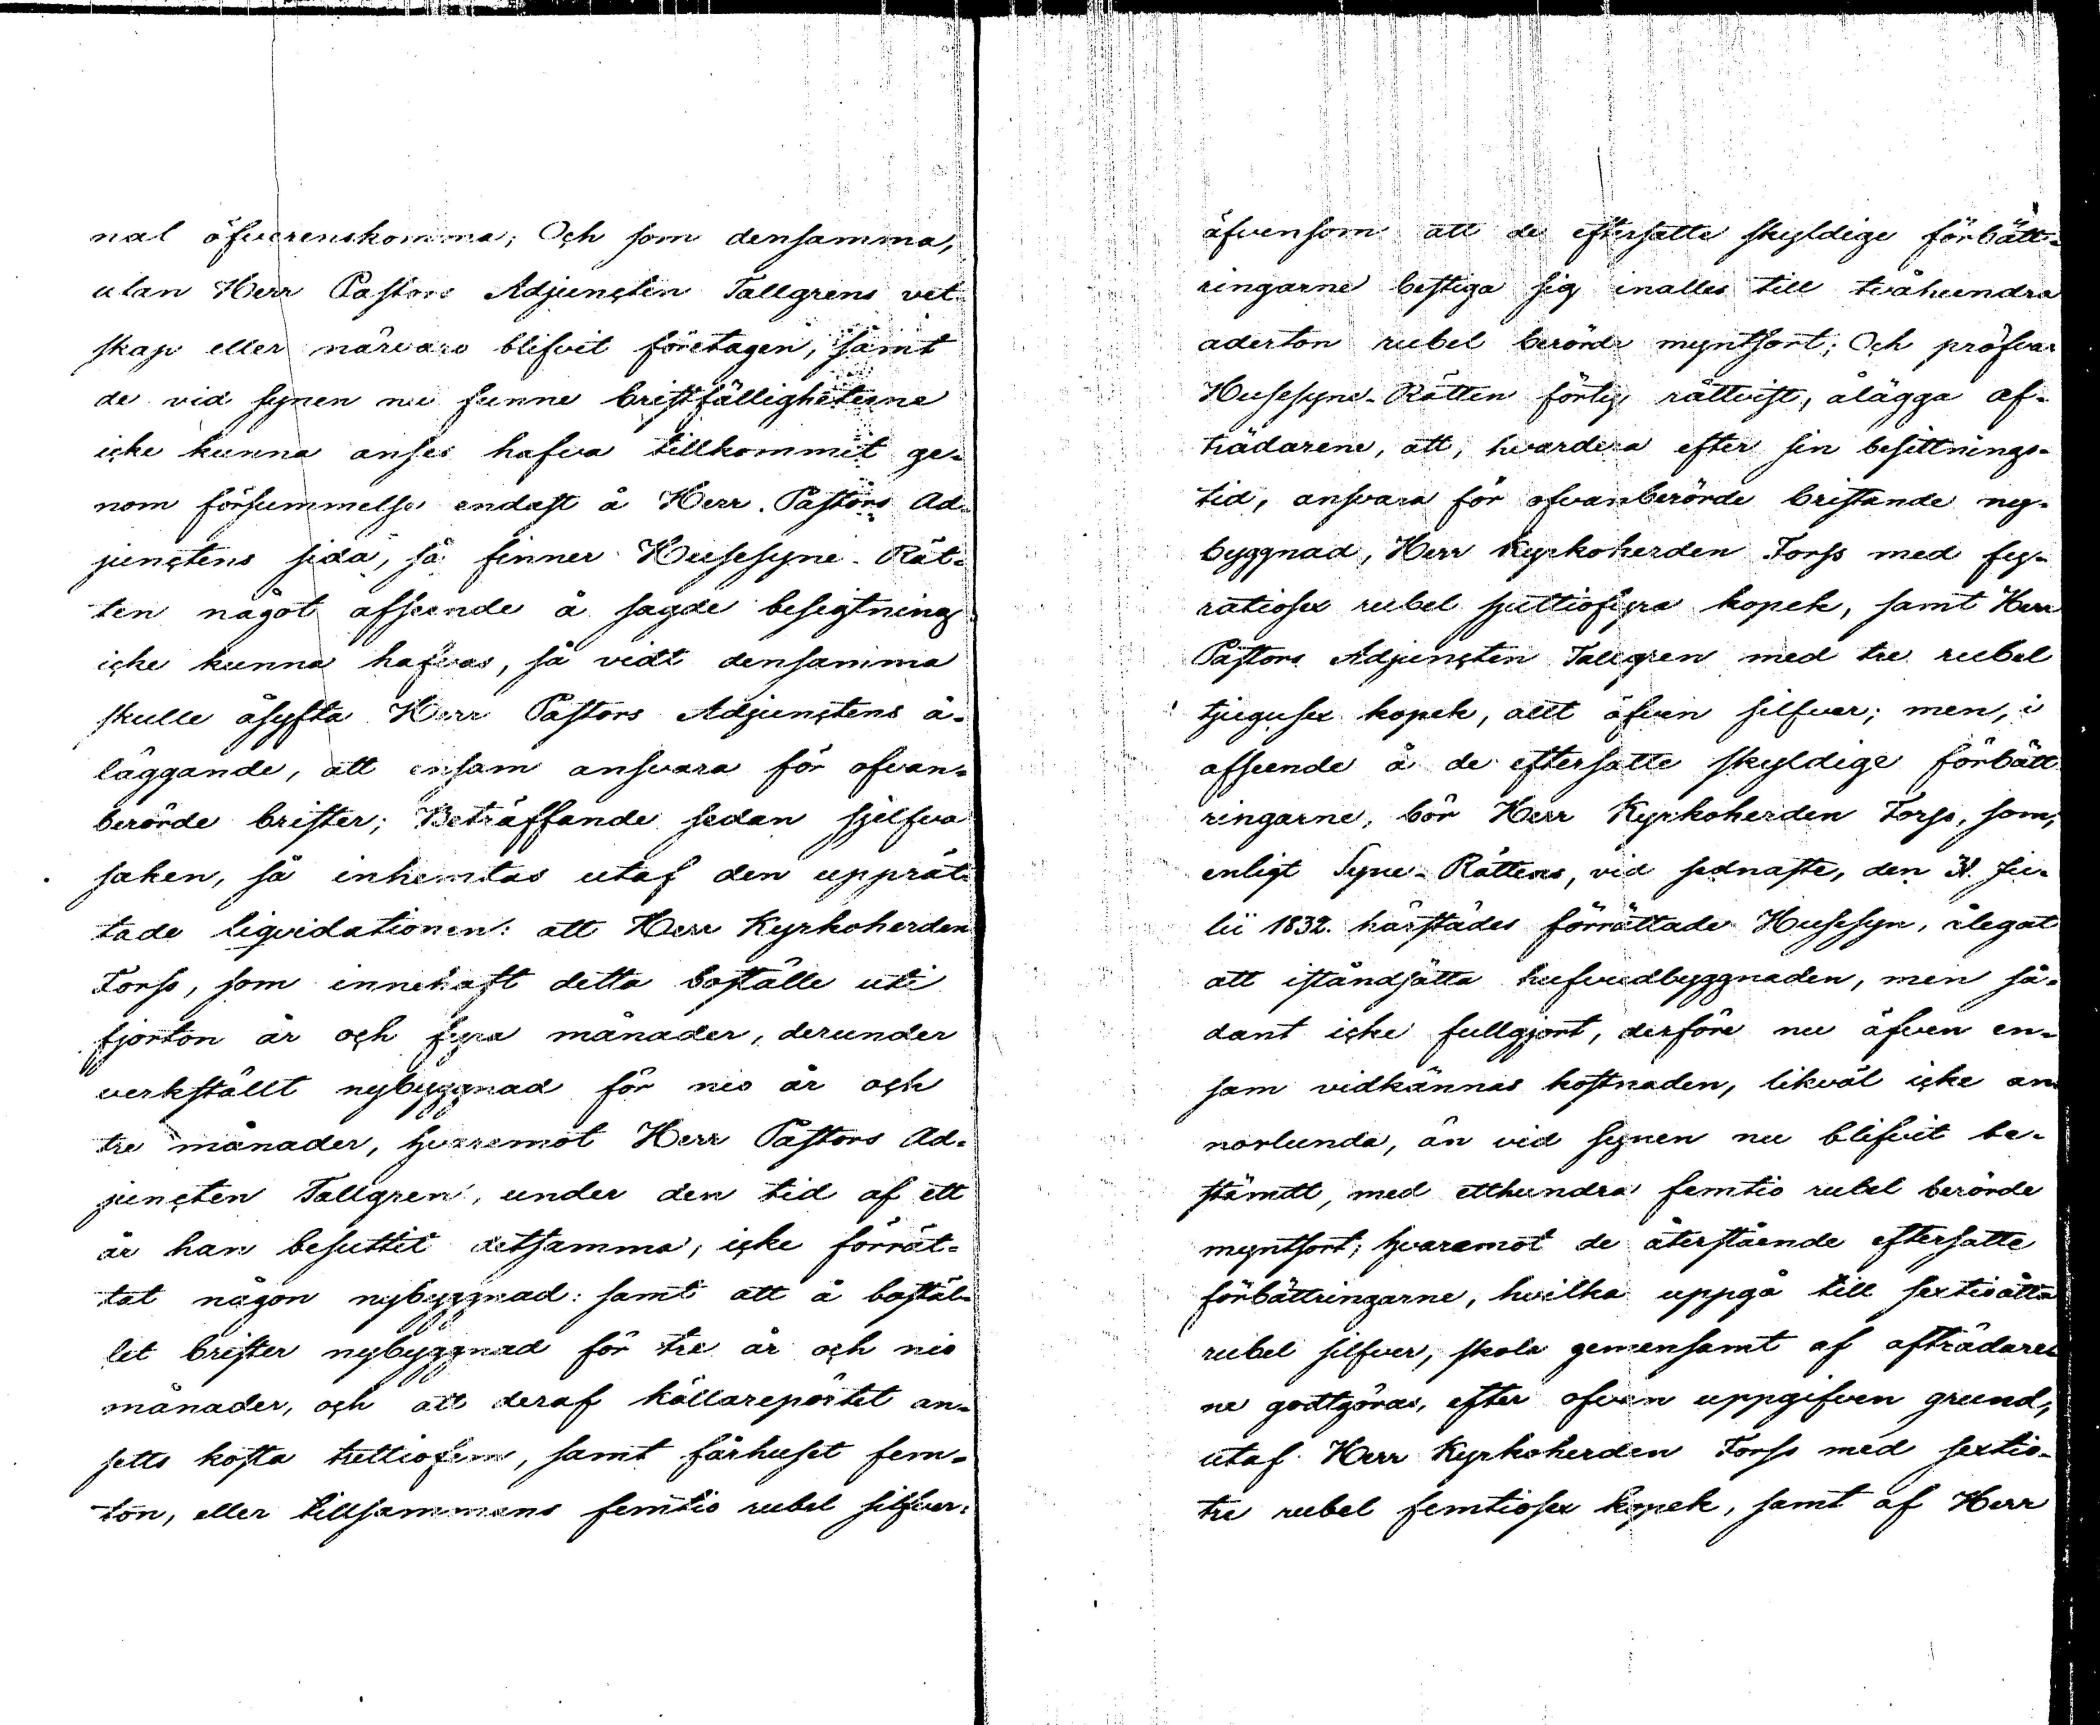 nal öfverenskomma; Och som densamma,
utan Herr Pastors Adjuncten Tallgrens vet-
skap eller närvaro blifvit företagen, samt
de vid synen nu funne bristfälligheterne
icke kunna anses hafva tillkommit ge-
nom försummelse endast å Herr Pastors Ad-
junctens sida, så finner Husesyne-Rät-
ten något afseende å sagde besigtning
icke kunna hafvas, så vidt densamma
skulle åsyfta Herr Pastors Adjunctens å-
läggande, att ensam ansvara för ofvan-
berörde brister; Beträffande sedan sjelfva
saken, så inhemtas utaf den upprät-
tade liqvidationen: att Herr Kyrkoherden
Forss, som innehaft detta boställe uti
fjorton år och fyra månader, derunder
verkställt nybyggnad för nio år och
tre månader, hvaremot Herr Pastors Ad-
juncten Tallgren, under den tid af ett
år han besuttit detsamma, icke förrät-
tat någon nybyggnad: samt att å bostäl-
let brister nybyggnad för tre år och nio
månader, och att deraf källarepörtet an-
setts kosta trettiofem, samt fårhuset fem-
ton, eller tillsammans femtio rubel silfver:
äfvensom att de eftersatte skyldige förbätt-
ringarne bestiga sig inalles till tvåhundra
aderton rubel berörde myntsort; Och pröfvar
Husesyne-Rätten förty rättvist, ålägga af-
trädarene, att, hvardera efter sin besittnings-
tid, ansvara för ofvanberörde bristande ny-
byggnad, Herr Kyrkoherden Forss med fyr-
ratiosex rubel sjuttiofyra kopek, samt Herr
Pastors Adjuncten Tallgren med tre rubel
tjugusex kopek, allt äfven silfver; men, i
afseende å de eftersatte skyldige förbätt
ringarne, bör Herr Kyrkoherden Forss, som,
enligt Syne-Rättens, vid sednaste, den 31. Ju-
lii 1832. härstädes förrättade Husesyn, ålegat
att iståndsätta hufvudbyggnaden, men så-
dant icke fullgjort, derföre nu äfven en-
sam vidkännas kostnaden, likväl icke an
norlunda, än vid synen nu blifvit be-
stämdt, med etthundra femtio rubel berörde
myntsort; hvaremot de återstående eftersatte
förbättringarne, hvilka uppgå till sextioåtta
rubel silfver, skola gemensamt af afträdare
ne godtgöras, efter ofvan uppgifven grund,
utaf Herr Kyrkoherden Forss med sextio-
tre rubel femtiosex kopek, samt af Herr